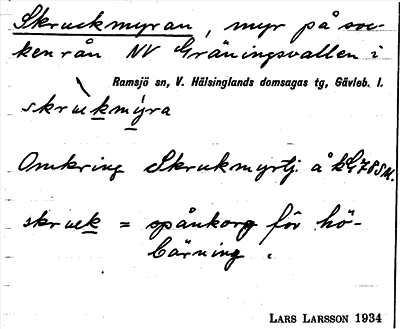 Skruckmyran, myr på soc-
kenrån NV Gräningsvallen i
Ramsjö sn, V. Hälsinglands domsagas tg, Gävleb. l.
skrùkmýra
Omkring Skrukmyrtj. å
skruk = spånkorg för hö-
bärning.
LARS LARSSON 1934